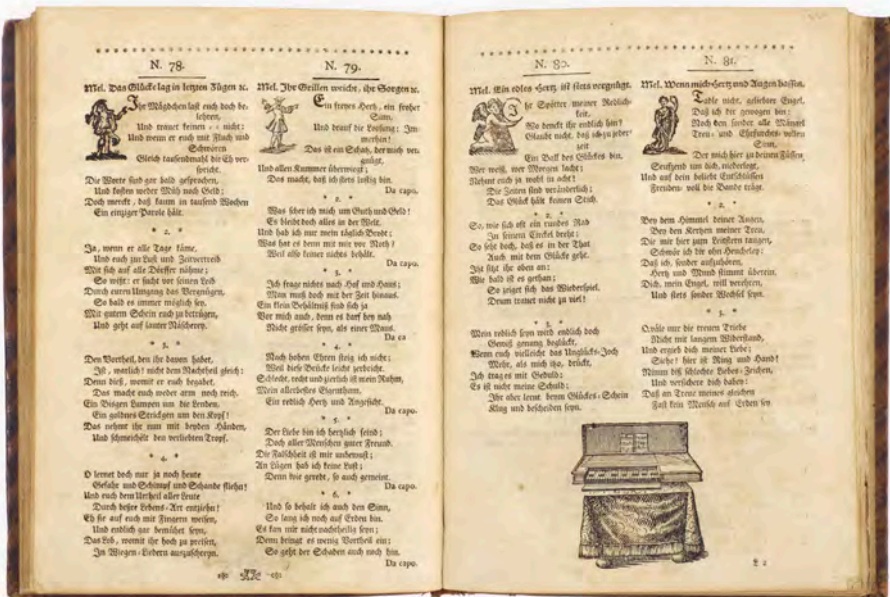 N. 78.
Mel. Das Glücke lag in letzten Zügen ꝛc.
Ihr Mägdchen last euch doch be-
lehren,
Und trauet keinen - - nicht:
Und wenn er euch mit Fluch und
Schwören
Gleich tausendmahl die Eh ver-
spricht.
Die Worte sind gar bald gesprochen,
Und kosten weder Müh noch Geld;
Doch merckt, daß kaum in tausend Wochen
Ein einziger Parole hält.
* 2. *
Ja, wenn er alle Tage käme,
Und euch zur Lust und Zeitvertreib
Mit sich auf alle Dörffer nähme;
So wißt: er sucht vor seinen Leib
Durch euren Umgang das Vergnügen,
So bald es immer möglich sey,
Mit gutem Schein euch zu betrügen,
Und geht auf lauter Näscherey.
* 3. *
Den Vortheil, den ihr davon habet,
Ist, warlich! nicht dem Nachtheil gleich:
Denn dieß, womit er euch begabet,
Das macht euch weder arm noch reich.
Ein Bisgen Lumpen um die Lenden,
Ein goldnes Strickgen um den Kopf!
Das nehmt ihr nun mit beyden Händen,
Und schmeichelt den verliebten Tropf.
* 4. *
O lernet doch nur ja noch heute
Gefahr und Schimpf und Schande fliehn!
Und euch dem Urtheil aller Leute
Durch beßre Lebens-Art entziehn!
Eh sie auf euch mit Fingern weisen,
Und endlich gar bemühet seyn,
Das Lob, womit ihr hoch zu preisen,
In Wiegen-Liedern auszuschreyn.
N. 79.
Mel. Ihr Grillen weicht, ihr Sorgen ꝛc.
Ein freyes Hertz, ein froher
Sinn,
Und drauf die Losung: Im-
merhin!
Das ist ein Schatz, der mich ver-
gnügt,
Und allen Kummer überwiegt;
Das macht, daß ich stets lustig bin.
Da capo.
* 2. *
Was scher ich mich um Guth und Geld!
Es bleibt doch alles in der Welt.
Und hab ich nur mein täglich Brodt;
Was hat es denn mit mir vor Noth?
Weil also keiner nichts behält.
Da capo.
* 3. *
Ich frage nichts nach Hof und Hauß;
Man muß doch mit der Zeit hinaus.
Ein klein Behältniß find sich ja
Vor mich auch, denn es darf hey nah
Nicht grösser seyn, als einer Maus.
Da ca
* 4. *
Nach hohen Ehren steig ich nicht;
Weil diese Brücke leicht zerbricht.
Schlecht, recht und zierlich ist mein Ruhm,
Mein allerbestes Eigenthum.
Ein redlich Hertz und Angesicht.
Da capo.
* 5. *
Der Liebe bin ich hertzlich feind;
Doch aller Menschen guter Freund.
Die Falschheit ist mir unbewust;
An Lügen hab ich keine Lust;
Denn wie geredt, so auch gemeint.
Da capo.
* 6. *
Und so behalt ich auch den Sinn,
So lang ich noch auf Erden bin.
Es kan mir nicht nachtheilig seyn;
Denn bringt es wenig Vortheil ein;
So geht der Schaden auch noch hin.
Da capo.
N. 80.
Mel. Ein edles Hertz ist stets vergnügt.
Ihr Spötter meiner Redlich-
keit,
Wo denckt ihr endlich hin?
Glaubt nicht, daß ich zu jeder
zeit
Ein Ball des Glückes bin.
Wer weiß, wer Morgen lacht;
Nehmt euch ja wohl in acht!
Die Zeiten sind veränderlich;
Das Glück hält keinen Stich.
* 2. *
So, wie sich oft ein rundes Rad
In seinem Circkel dreht;
So seht doch, daß es in der That
Auch mit dem Glücke geht.
Itzt sitzt ihr oben an:
Wie bald ist es gethan;
So zeiget sich das Wiederspiel.
Drum trauet nicht zu viel!
* 3. *
Mein redlich seyn wird endlich doch
Genug beglückt,
Wenn euch vielleicht das Unglücks-Joch
Mehr, als mich itzo, drückt,
Ich trag es mit Gedult;
Es ist nicht meine Schuld;
Ihr aber lernt beym Glückes-Schein
Klug und bescheiden seyn.
N. 81.
Mel. Wenn mich Hertz und Augen hassen.
Table nicht, geliebter Engel,
Daß ich dir gewogen bin;
Noch den sonder alle Mängel
Treu- und Ehrfurchts-vollen
Sinn,
Der mich hier zu deinen Füssen,
Seufzend um dich, niederlegt,
Und auf dein beliebt Entschlüssen
Freuden-voll die Bande trägt.
* 2. *
Bey dem Himmel deiner Augen,
Bey den Kertzen meiner Treu,
Die mir hier zum Leitstern taugen,
Schwör ich dir ohn Heucheley:
Daß ich, sonder aufzuhören,
Hertz und Mund stimmt überein,
Dich, mein Engel, will verehren,
Und stets sonder Wechsel seyn.
* 3. *
Quäle nur die treuen Triebe
Nicht mit langem Widerstand,
Und ergieb dich meiner Liebe;
Siehe! hier ist Ring und Hand!
Nimm diß schlechte Liebes-Zeichen,
Und versichere dich dabey:
Daß an Treue meines gleichen
Fast kein Mensch auf Erden sey.
L 2